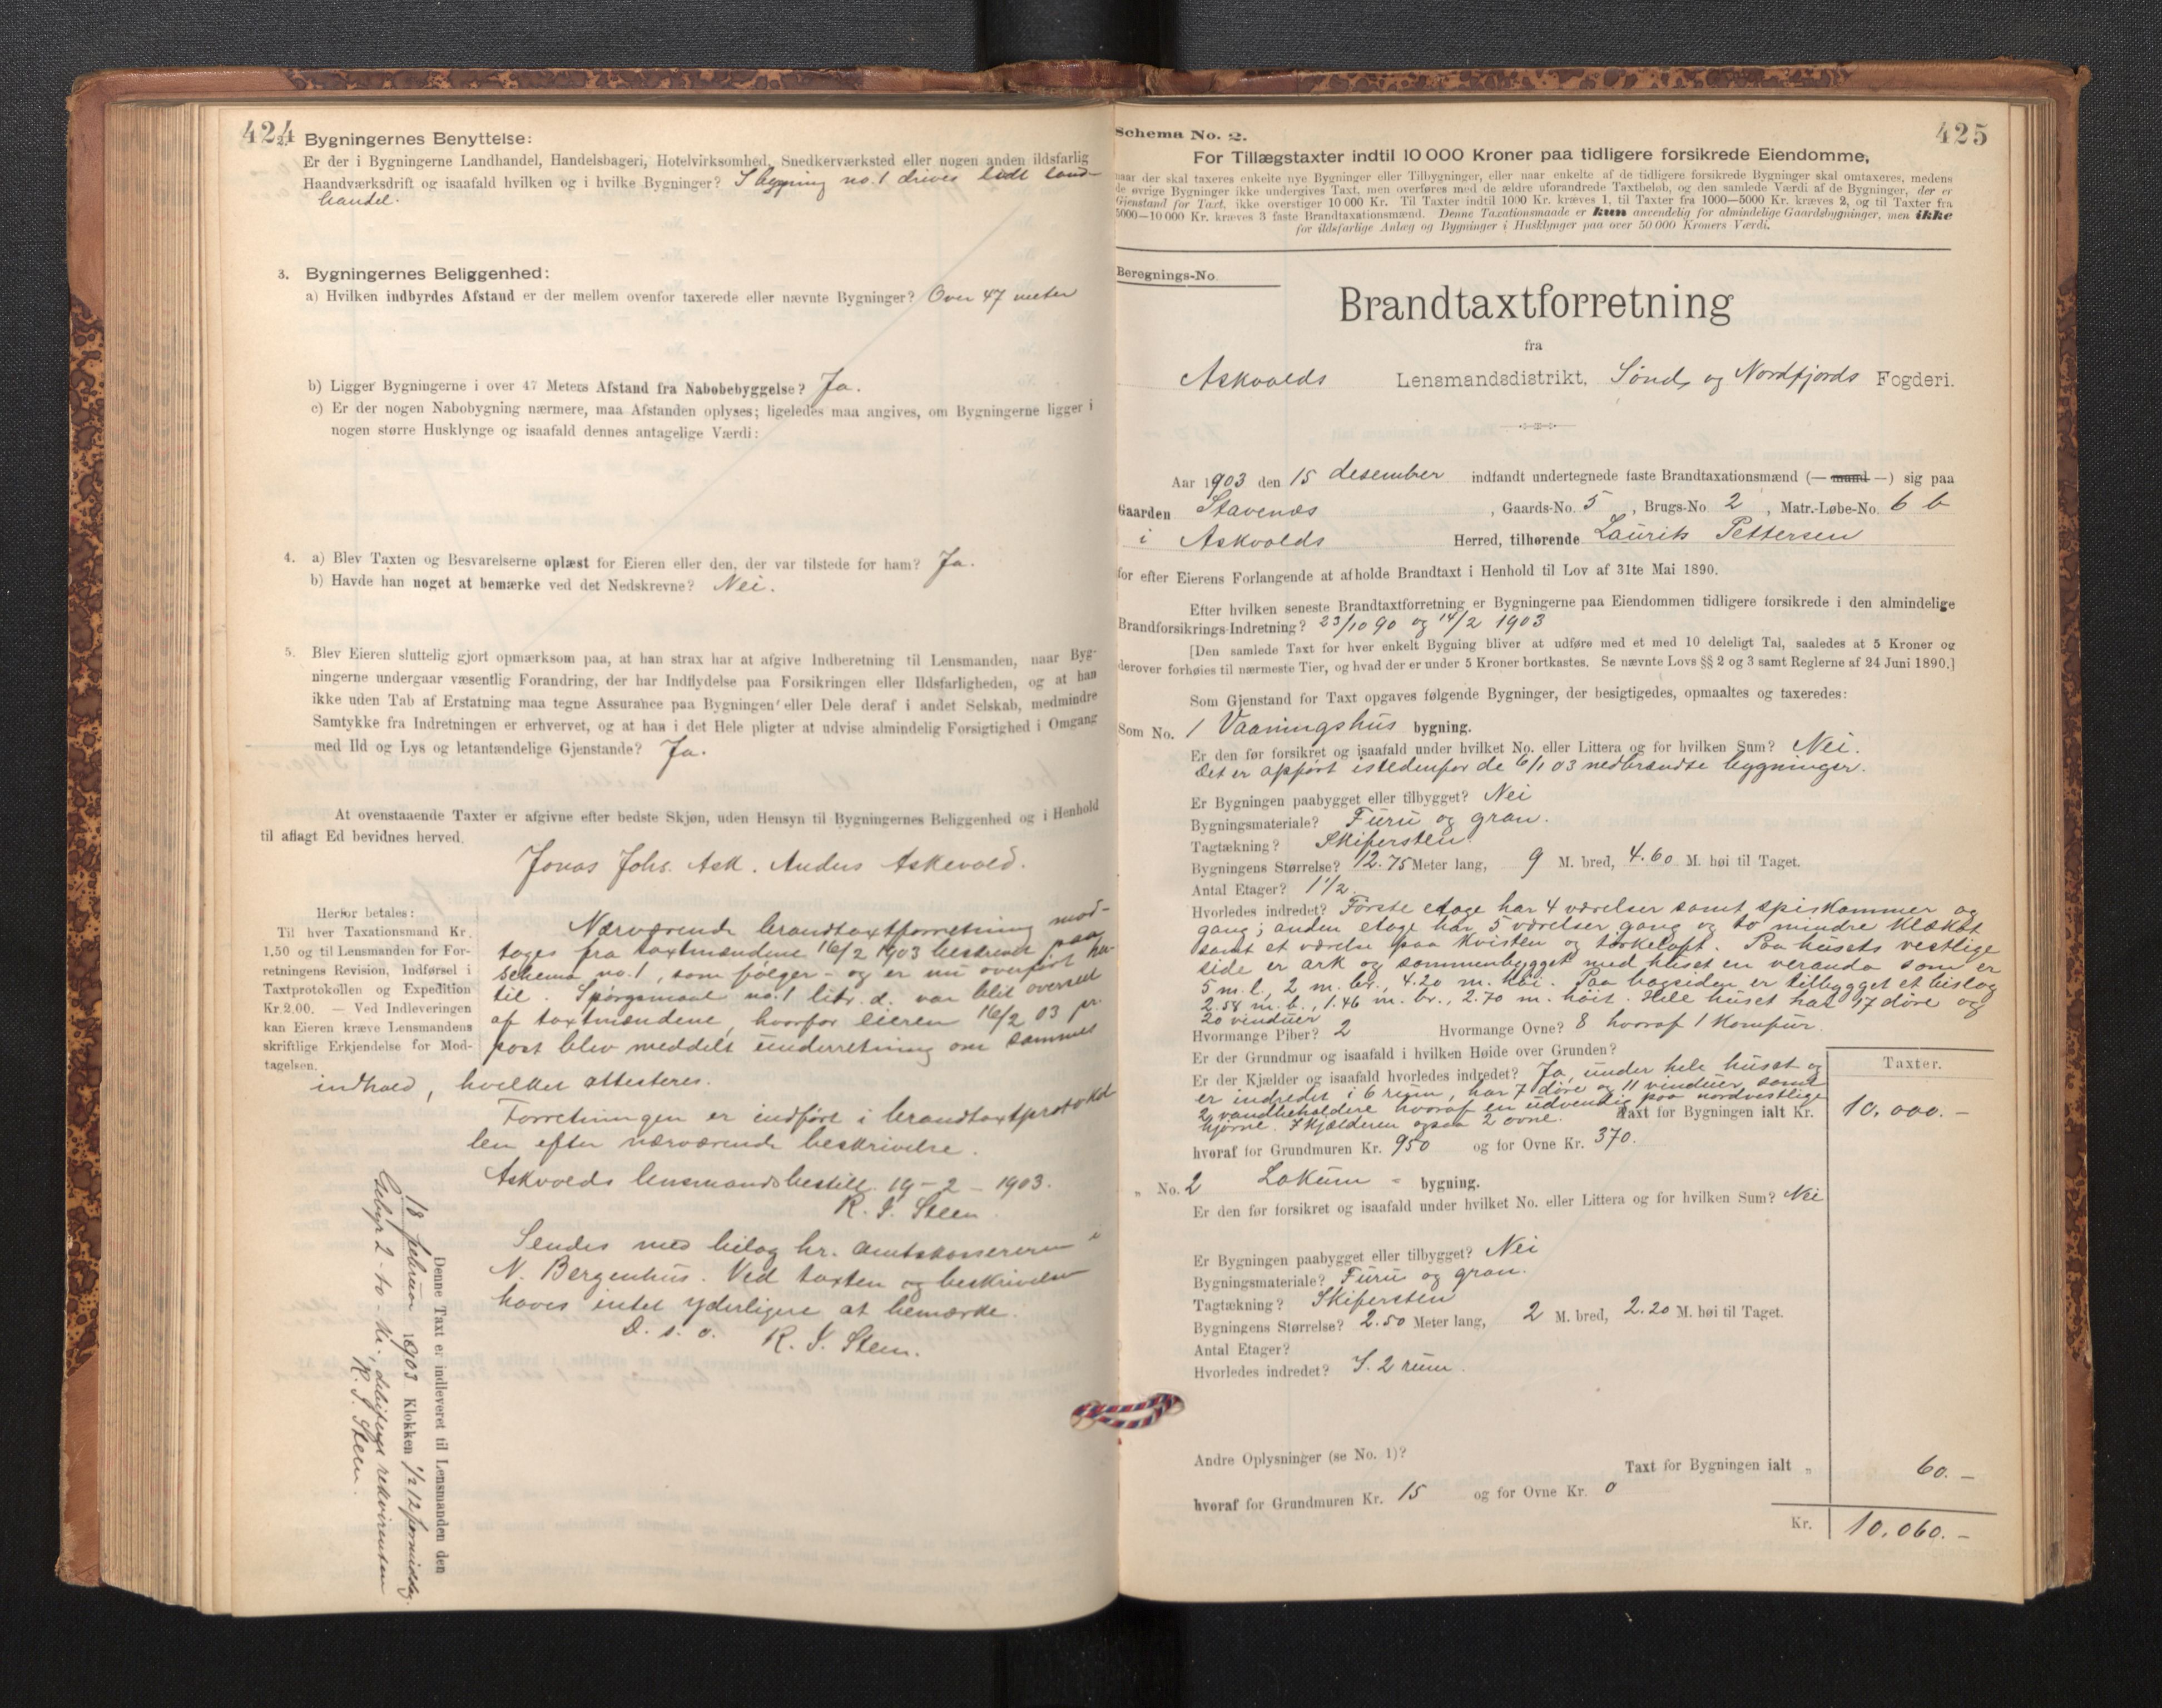 424
2. Bygningernes Benyttelse:
Er der i Bygningerne Landhandel, Handelsbageri, Hotelvirksomhed, Snedkerværksted eller nogen anden ildsfarlig
Haandværksdrift og isaafald hvilken og i hvilke Bygninger? I bygning no. 1 drives lidt land-
handel.
3. Bygningernes Beliggenhed:
a) Hvilken indbyrdes Afstand er der mellem ovenfor taxerede eller nævnte Bygninger? Over 47 meter
b) Ligger Bygningerne i over 47 Meters Afstand fra Nabobebyggelse? Ja.
c) Er der nogen Nabobygning nærmere, maa Afstanden oplyses; ligeledes maa angives, om Bygningerne ligger i
nogen større Husklynge og isaafald dennes antagelige Værdi:
4. a) Blev Taxten og Besvarelserne oplæst for Eieren eller den, der var tilstede for ham? Ja.
b) Havde han noget at bemærke ved det Nedskrevne? Nei.
5. Blev Eieren sluttelig gjort opmærksom paa, at han strax har at afgive Indberetning til Lensmanden, naar Byg-
ningerne undergaar væsentlig Forandring, der har Indflydelse paa Forsikringen eller Ildsfarligheden, og at han
ikke uden Tab af Erstatning maa tegne Assurance paa Bygningen eller Dele deraf i andet Selskab, medmindre
Samtykke fra Indretningen er erhvervet, og at han i det Hele pligter at udvise almindelig Forsigtighed i Omgang
med Ild og Lys og letantændelige Gjenstande? Ja.
At ovenstaaende Taxter er afgivne efter bedste Skjøn, uden Hensyn til Bygningernes Beliggenhed og i Henhold
til aflagt Ed bevidnes herved.
Jonas Johs. Ask. Anders Askevold.
Herfor betales:
Til hver Taxationsmand Kr.
1.50 og til Lensmanden for For-
retningens Revision, Indførsel i
Taxtprotokollen og Expedition
Kr. 2.00. — Ved Indleveringen
kan Eieren kræve Lensmandens
skriftlige Erkjendelse for Mod-
tagelsen.
Nærværende brandtaxtforretning mod-
toges fra taxtmændene 16/2 1903 beskrevet paa
schema no. 1, som følger - og er nu overført her-
til. Spørgsmaal no. 1 litr. d. var blit overseet
af taxtmændene, hvorfor eieren 16/2 03 pr.
post blev meddelt underretning om sammes
indhold, hvilket attesteres.
Forretningen er indført i brandtaxtprotokol
len efter nærværende beskrivelse.
Askvolds lensmandsbestill. 19-2-1903.
R. J. Steen.
Sendes med bilag hr. amtskassereren i
N. Bergenhus. Ved taxten og beskrivelsen
haves intet yderligere at bemærke.
D. s. o. R. J. Steen.
Denne Taxt er indleveret til Lensmanden den
18 februar 1903 Klokken 1/2 12 formiddag.
Gebyr 2-to-kr. rekvirenten
R. J. Steen.
425
Schema No. 2.
For Tillægstaxter indtil 10 000 Kroner paa tidligere forsikrede Eiendomme,
naar der skal taxeres enkelte nye Bygninger eller Tilbygninger, eller naar enkelte af de tidligere forsikrede Bygninger skal omtaxeres, medens
de øvrige Bygninger ikke undergives Taxt, men overføres med de ældre uforandrede Taxtbeløb, og den samlede Værdi af de Bygninger, der er
Gjenstand for Taxt, ikke overstiger 10 000 Kr. Til Taxter indtil 1000 Kr. kræves 1, til Taxter fra 1000—5000 Kr. kræves 2, og til Taxter fra
5000—10 000 Kr. kræves 3 faste Brandtaxationsmænd. Denne Taxationsmaade er kun anvendelig for almindelige Gaardsbygninger, men ikke
for ildsfarlige Anlæg og Bygninger i Husklynger paa over 50 000 Kroners Værdi.
Beregnings-No.
Brandtaxtforretning
fra
Askvolds Lensmandsdistrikt, Sønd og Nordfjords Fogderi.
Aar 1903 den 15 desember indfandt undertegnede faste Brandtaxationsmænd (— mand —) sig paa
Gaarden Stavenæs, Gaards-No. 5, Brugs-No 2, Matr.-Løbe-No. 6 b
i Askvolds Herred, tilhørende Laurits Pettersen
for efter Eierens Forlangende at afholde Brandtaxt i Henhold til Lov af 31te Mai 1890.
Efter hvilken seneste Brandtaxtforretning er Bygningerne paa Eiendommen tidligere forsikrede i den almindelige
Brandforsikrings-Indretning? 23/10 90 og 14/2 1903
[Den samlede Taxt for hver enkelt Bygning bliver at udføre med et med 10 deleligt Tal, saaledes at 5 Kroner og
derover forhøies til nærmeste Tier, og hvad der er under 5 Kroner bortkastes. Se nævnte Lovs §§ 2 og 3 samt Reglerne af 24 Juni 1890.]
Som Gjenstand for Taxt opgaves følgende Bygninger, der besigtigedes, opmaaltes og taxeredes:
Som No. 1 Vaaningshus bygning.
Er den før forsikret og isaafald under hvilket No. eller Littera og for hvilken Sum? Nei.
Det er opført istedenfor de 6/1 03 nedbrændte bygninger.
Er Bygningen paabygget eller tilbygget? Nei
Bygningsmateriale? Furu og gran.
Tagtækning? Skifersten
Bygningens Størrelse? 12.75 Meter lang, 9 M. bred, 4.60 M. høi til Taget.
Antal Etager? 1 1/2.
Hvorledes indredet? Første etage har 4 værelser samt spiskammer og
gang; anden etage har 5 værelser gang og to mindre klækot
samt et værelse paa kvisten og tørkeloft. Paa husets vestlige
side er ark og sammenbygget med huset en veranda som er
5 m. l., 2 m. br., 4.20 m. høi. Paa bagsiden er tilbygget et bislag
2.58 m. l., 1.46 m. br., 2.70 m. høit. Hele huset har 17 døre og
20 vinduer
Hvormange Piber? 2 Hvormange Ovne? 8 hvoraf 1 komfur.
Er der Grundmur og isaafald i hvilken Høide over Grunden?
Er der Kjælder og isaafald hvorledes indredet? Ja, under hele huset og
er indredet i 6 rum, har 7 døre og 11 vinduer samt
2 vandbeholdere hvoraf en udvendig paa nordvestlige
hjørne. I kjælderen ogsaa 2 ovne.
Taxter.
Taxt for Bygningen ialt Kr. 10,000.-
hvoraf for Grundmuren Kr. 950 og for Ovne Kr. 370.
„ No. 2 Lokum - bygning.
Er den før forsikret og isaafald under hvilket No. eller Littera og for hvilken Sum? Nei
Er Bygningen paabygget eller tilbygget? Nei
Bygningsmateriale? Furu og gran.
Tagtækning? Skifersten
Bygningens Størrelse? 2.50 Meter lang, 2 M. bred, 2.20 M. høi til Taget.
Antal Etager?
Hvorledes indredet? I. 2 rum.
Andre Oplysninger (se No. 1)?
Taxt for Bygningen ialt „ 60.-
hvoraf for Grundmuren Kr. 15 og for Ovne Kr. 0
Kr. 10,060.-